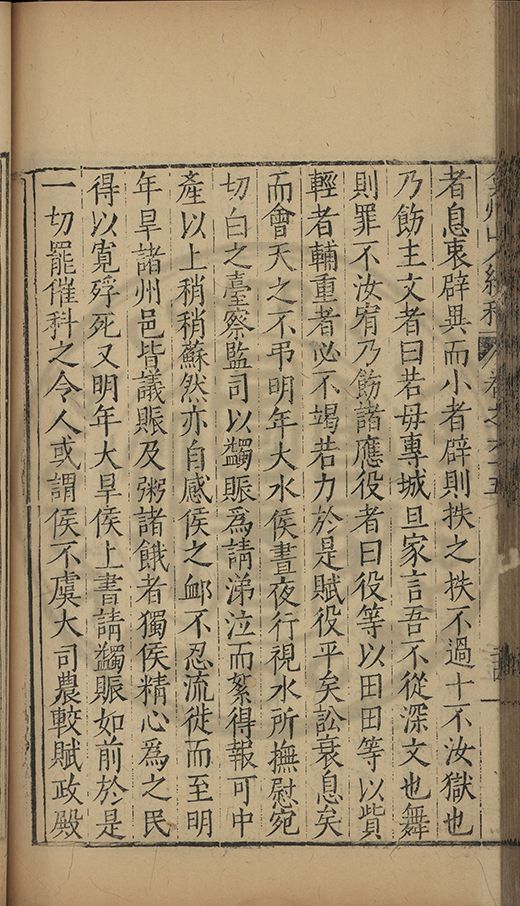 者息衷辟異而小者辟則抶之抶不過十不汝獄也
乃飭主文者曰若毋專城旦家言吾不從深文也舞
則罪不汝宥乃飭諸應役者曰役等以田田等以貲
輕者輔重者必不竭若力於是賦役平矣訟衰息矣
而會天之不弔明年大水侯晝夜行視水所撫慰宛
切白之臺察監司以蠲賑為請涕泣而絮得報可中
產以上稍稍蘇然亦自感侯之卹不忍流徙而至明
年旱諸州邑皆議賑及粥諸餓者獨侯精心為之民
得以寬殍死又明年大旱侯上書請蠲賑如前於是
一切罷催科之令人或謂侯不虞大司農較賦政殿